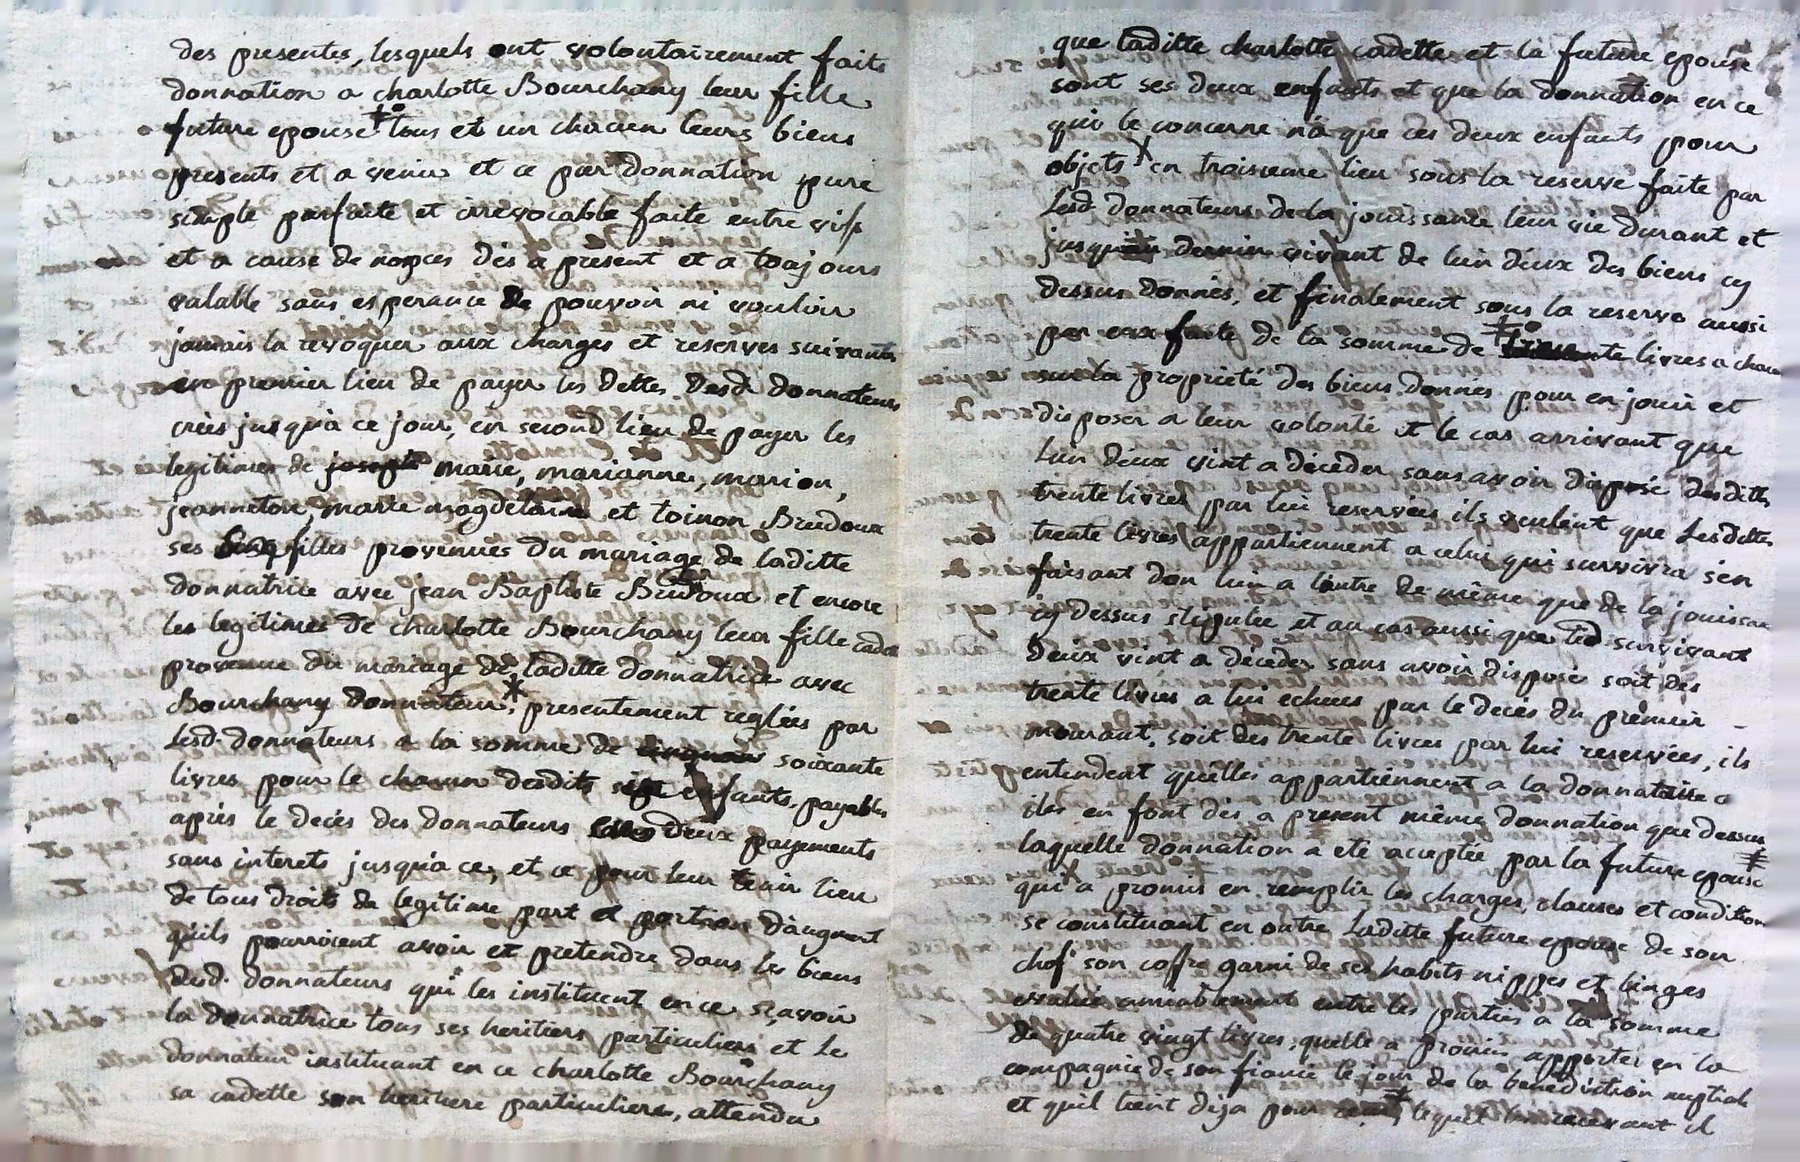 des presentes, lesquels ont volontairement faits
donnation a charlotte Bourchany leur fille
future epouse tous et un chacun leurs biens
presents et a venir et ce par donnation pure
simple parfaite et irrevocable faite entre vifs
et a cause de nopces dès a present et a toujours
valable sans esperance de pouvoir ni vouloir
jamais la revoquer aux charges et reserves suivantes
en premier lieu de payer les dettes desd. donnateurs
crées jusqu'à ce jour, en second lieu de payer les
legitimes de marie, marianne, marion,
jeanneton, marie magdelaine et toinon Brudoux
ses filles provenues du mariage de laditte
donnatrice avec jean Baptiste Brudoux et encore
les legitimes de charlotte Bourchany leur fille cadette
provenue du mariage de laditte donnatrice avec
Bourchany donnateur, presentement reglées par
lesd. donnateurs a la somme de soixante
livres pour le chacun desdits enfants, payables
après le decès des donnateurs deux payements
sans interets jusqu'a ce, et ce pour leur tenir lieu
de tous droits de legitime part et portion d'augment
qu'ils pourroient avoir et pretendre dans les biens
desd. donnateurs qui les instituent en ce sçavoir
la donnatrice tous ses heritiers particuliers et le
donnateur instituant en ce charlotte Bourchany
sa cadette son heritiere particuliere, attendu
que laditte charlotte cadette et la future epouse
sont ses deux enfants et que la donnation en ce
qui le concerne n'a que ces deux enfants pour
objets en troisieme lieu sous la reserve faite par
lesd. donnateurs de la jouissance leur vie durant et
jusqu'au dernier vivant de l'un d'eux des biens cy
dessus donnés, et finalement sous la reserve aussi
par eux faite de la somme de livres a chacun
sur la proprieté des biens donnés pour en jouir et
disposer a leur volonté et le cas arrivant que
l'un d'eux vint a déceder sans avoir disposé desdittes
trente livres par lui reservées ils veulent que lesdittes
trente livres appartiennent a celui qui survivra s'en
faisant don l'un a l'autre de même que de la jouissance
cy dessus stipulée et au cas aussi que led survivant
d'eux vint a déceder sans avoir disposé soit des
trente livres a lui echues par le decès du premier
mourant, soit des trente livres par lui reservées, ils
entendent qu'elles appartiennent a la donnataire a
ils en font dès a present même donnation que dessus
laquelle donnation a eté acceptée par la future epouse
qui a promis en remplir les charges, clauses et condition
se constituant en outre laditte future epouse de son
chef son coffre garni de ses habits nippes et linges
evalué amiablement entre les parties a la somme
de quatre vingt livres, quelle a promis apporter en la
compagnie de son fiancé le jour de la benediction nuptiale
et qu'il tient deja pour lequel le recevant il